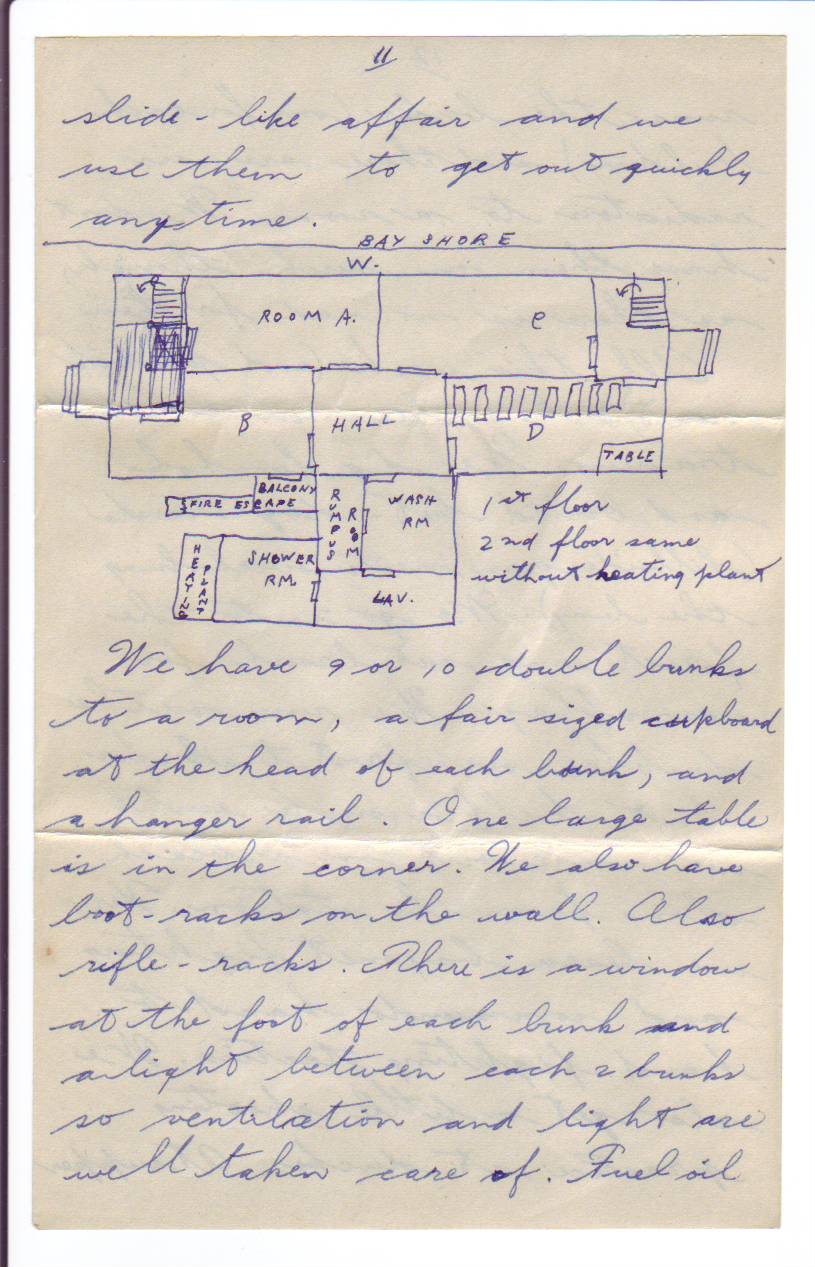 11
slide-like affair and we
use them to get out quickly
anytime.
BAY SHORE
W.
ROOM A.
C
B
HALL
D
TABLE
BALCONY
FIRE ESCAPE
RUMPUS ROOM
WASH RM
1st floor
2nd floor same
without heating plant
HEATING PLANT
SHOWER RM.
LAV.
We have 9 or 10 double bunks
to a room, a fair sized cupboard
at the head of each bunk, and
a hanger rail. One large table
is in the corner. We also have
boot-racks on the wall. Also
rifle-racks. There is a window
at the foot of each bunk and
a light between each 2 bunks
so ventilation and light are
well taken care of. Fuel oil